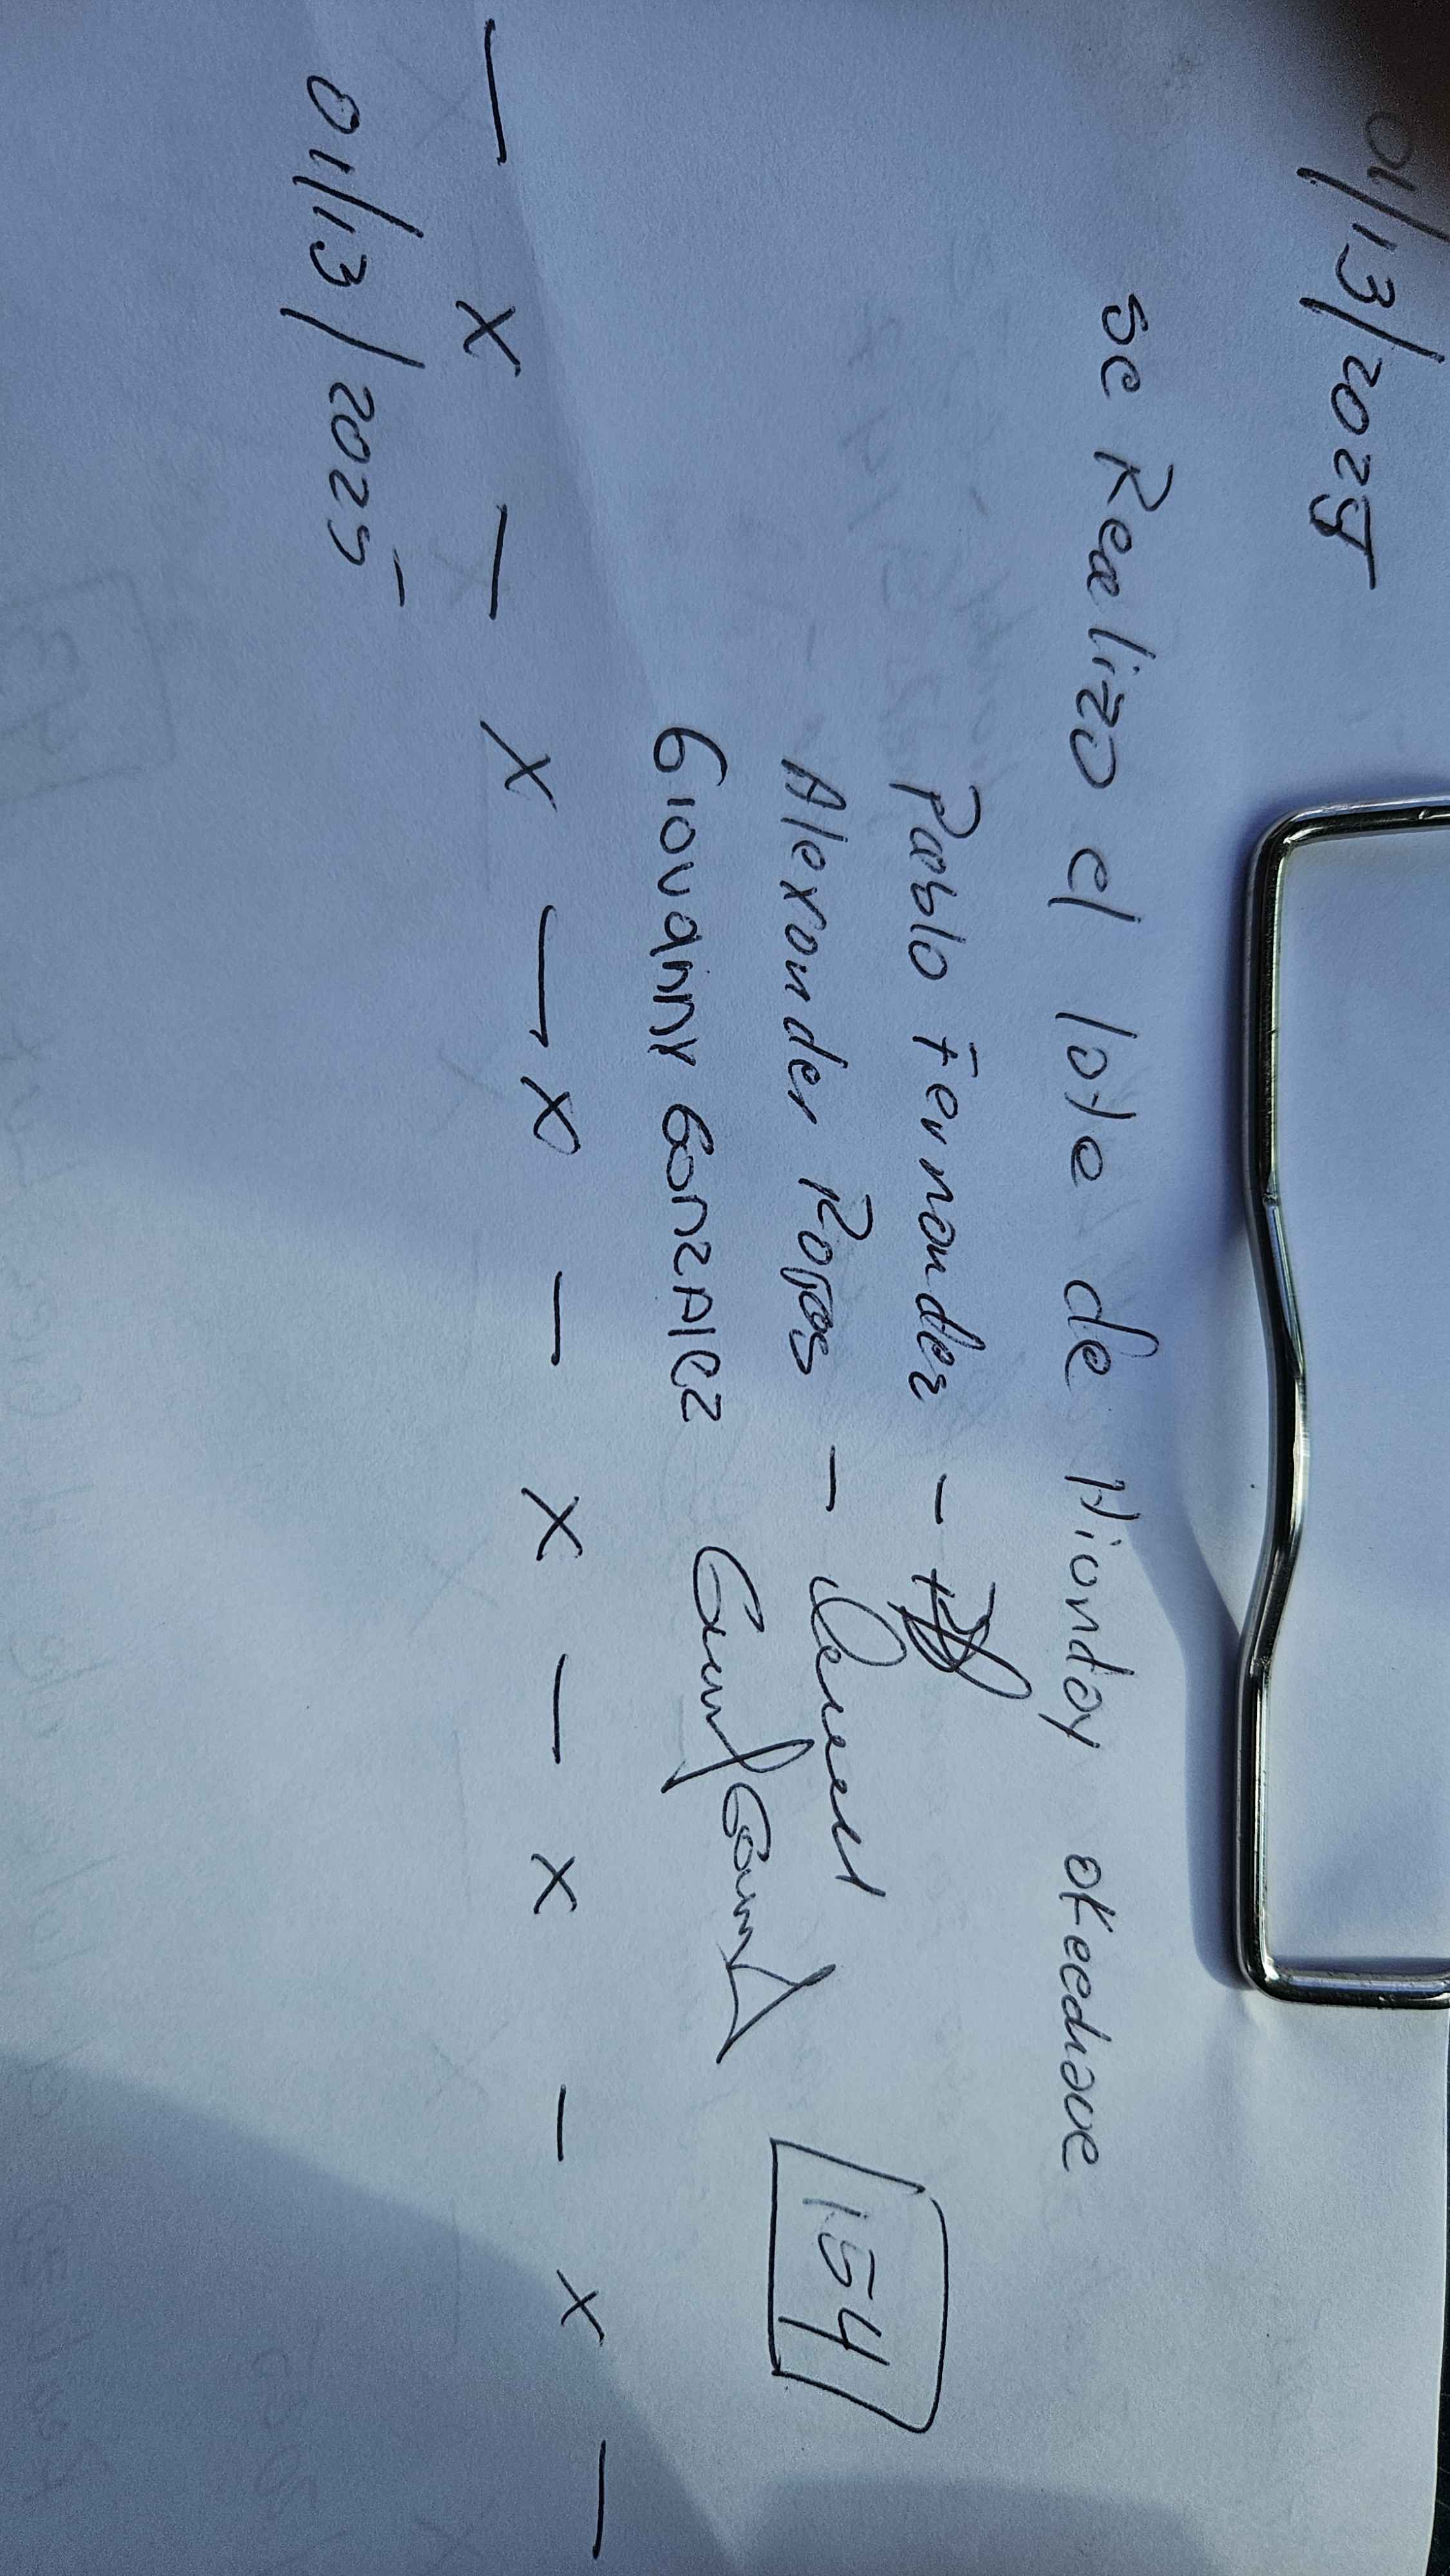 01/13/2025
se Realizo el lote de Hionday okeechove
Pablo Fernandez -
Alexander Rojas -
Giovanny Gonzalez
154
— x — x — x — x — x — x —
01/13/2025